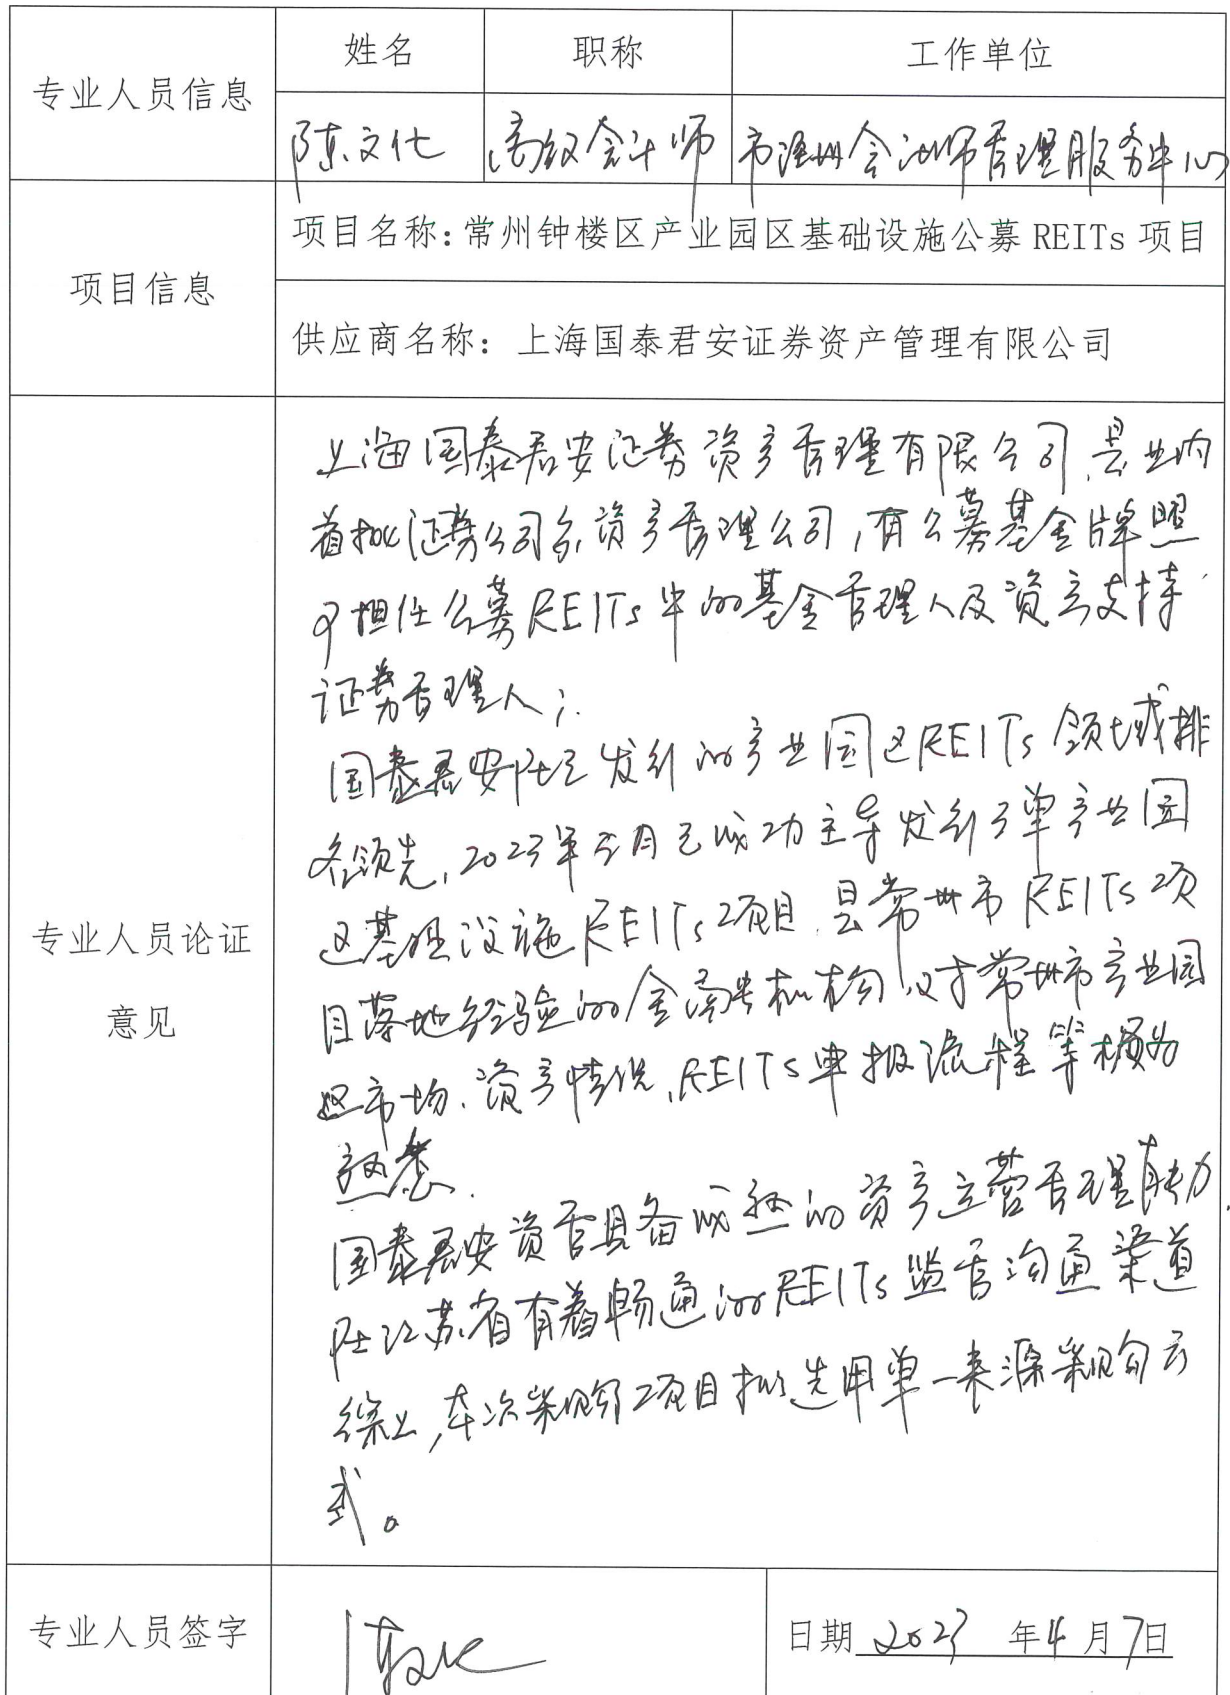 专业人员信息
姓名
职称
工作单位
陈文化
高级会计师
市注册会计师管理服务中心
项目信息
项目名称：常州钟楼区产业园区基础设施公募 REITs 项目
供应商名称：上海国泰君安证券资产管理有限公司
专业人员论证
意见
上海国泰君安证券资产管理有限公司，是业内
首批证券公司系资产管理公司，有公募基金牌照
可担任公募REITs中的基金管理人及资产支持
证券管理人；
国泰君安在已发行的产业园区REITs领域排
名领先，2023年3月已成功主导发行3单产业园
区基础设施REITs项目，是常州市REITs项
目落地经验的金融机构，对常州市产业园
区市场、资产情况，REITs申报流程等极为
熟悉.
国泰君安资管具备成熟的资产运营管理能力，
在江苏省有着畅通的REITs监管沟通渠道
综上，本次采购项目拟选用单一来源采购方
式。
专业人员签字
陈文化
日期 2023 年 4 月 7 日